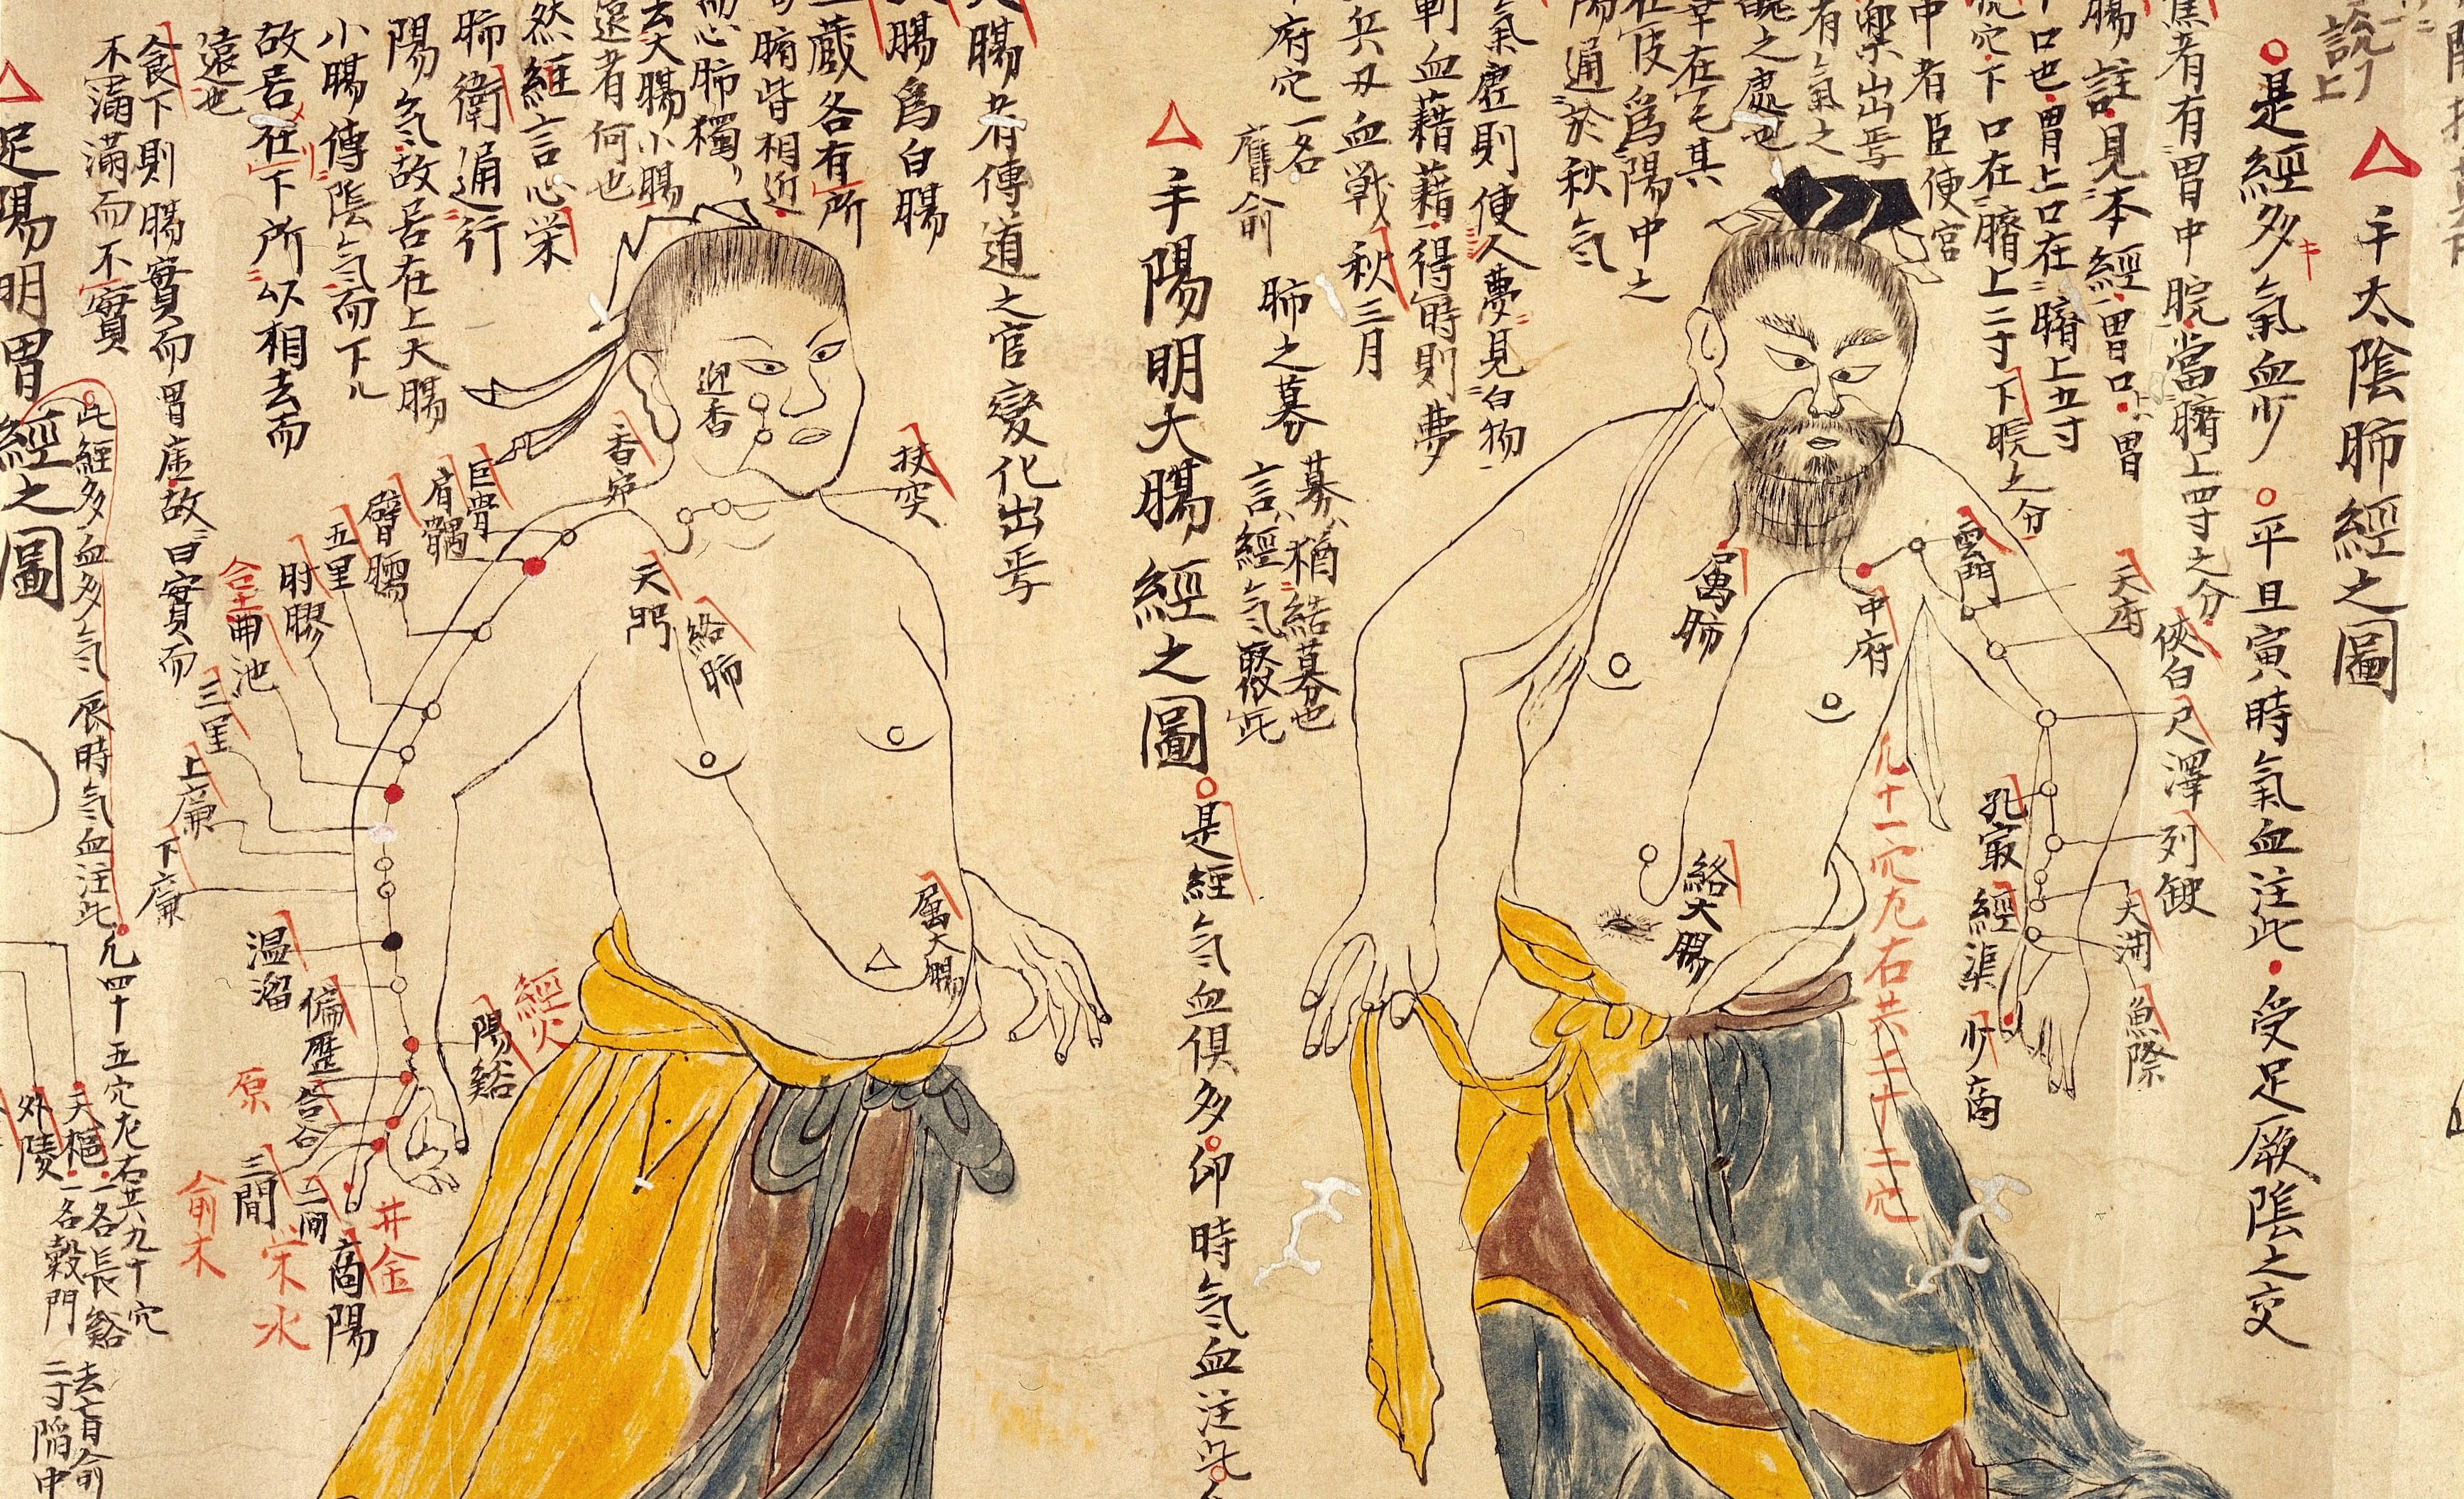 說上
手太陰肺經之圖
是經多氣血少
平旦寅時氣血注此
受足厥陰之交
焦者有胃中脘當臍上四寸之分
腸註見本經胃口上胃
口也胃上口在臍上五寸
下口在臍上二寸下脘之分
中者臣使宮
樂出焉
有氣之
之處也
華在毛其
在皮爲陽中之
陽通於秋氣
氣虛則使人夢見白物
血藉藉得時則夢
兵刃血戰秋三月
府穴一名
膺俞
肺之募
募猶結募也
言經氣聚此
雲門
中府
天府
俠白
尺澤
孔最
列缺
經渠
太渕
魚際
少商
屬肺
絡大腸
凡十一穴左右共二十二穴
手陽明大腸經之圖
是經氣血俱多
卯時氣血注此
大腸者傳道之官變化出焉
腸爲白腸
藏各有所
腑皆相近
心肺獨
去大腸小腸
遠者何也
然經言心栄
肺衛通行
陽氣故居在上大腸
小腸傳陰氣而下
故居在下所以相去而
遠也
迎香
香窌
扶突
天
絡肺
巨骨
肩髃
臂臑
五里
肘髎
合土
曲池
三里
上廉
下廉
温溜
偏歷
陽谿
經火
合谷
原
三間
俞木
二间
水
商陽
井金
屬大腸
食下則腸實而胃虛故曰實而
不滿滿而不實
足陽明胃經之圖
此經多血多氣
辰時氣血注此
凡四十五穴左右共九十穴
天樞
一名長谿
一名穀門
去肓俞
二寸陷中
外陵